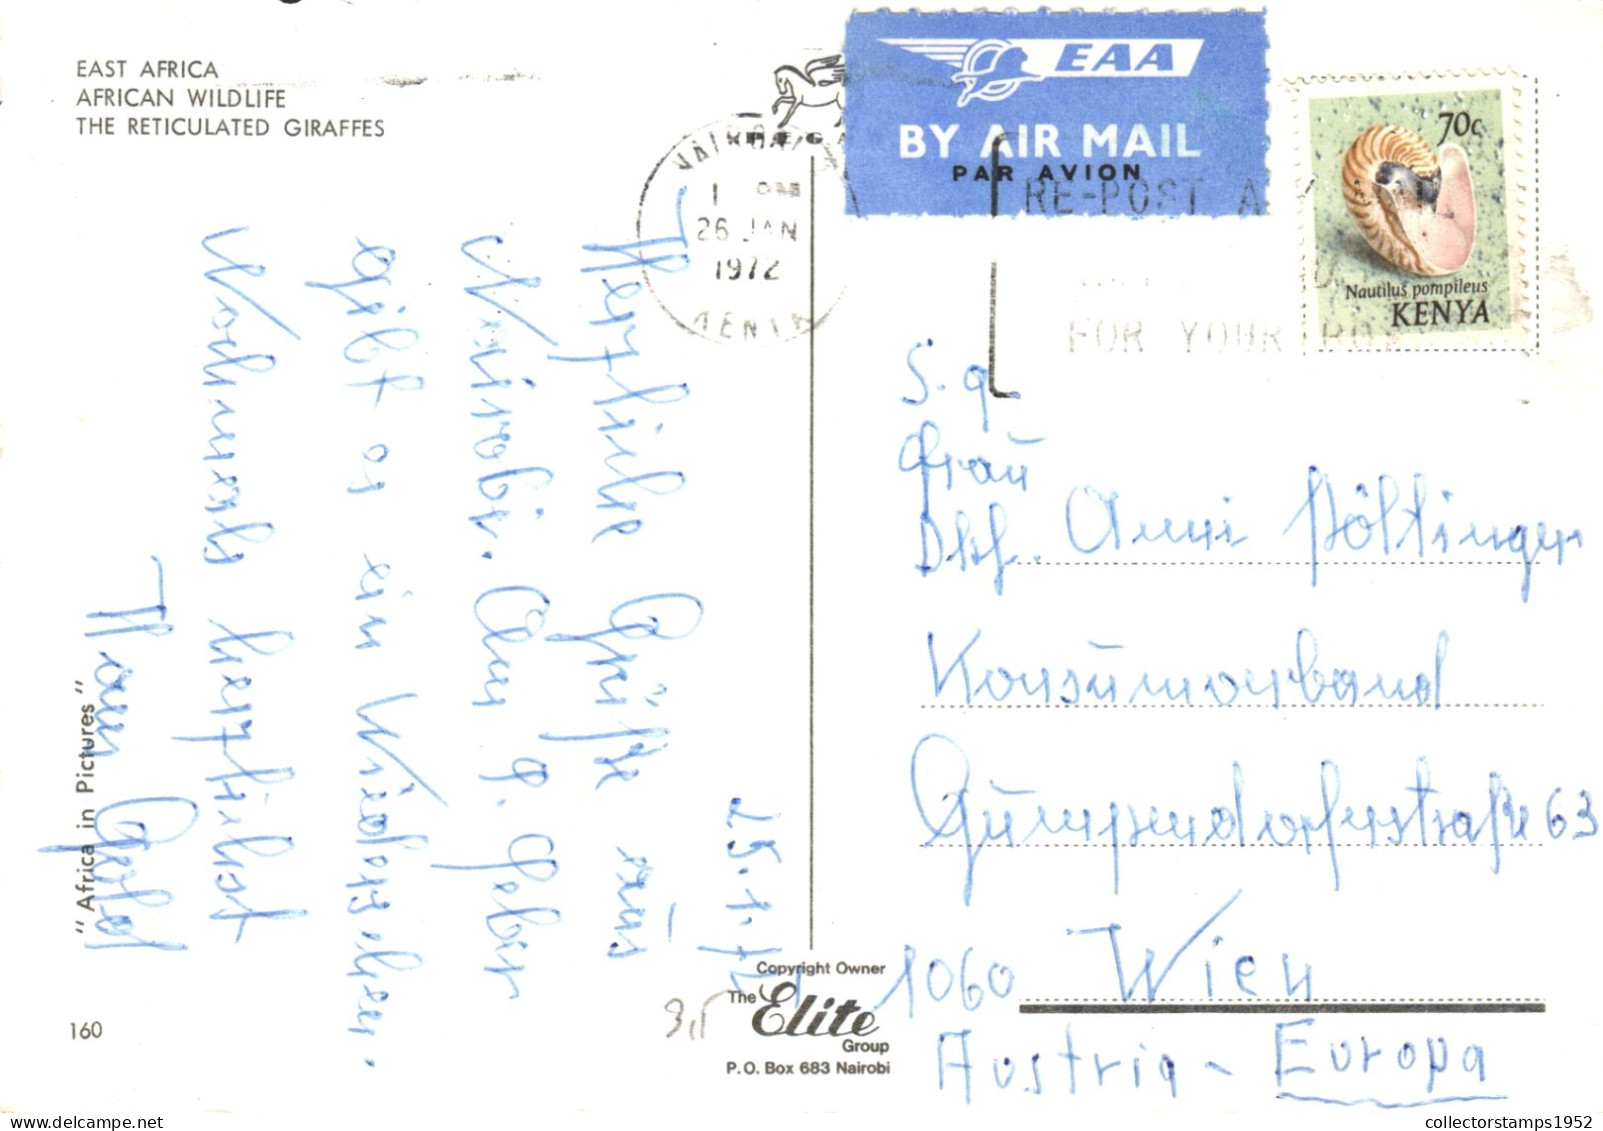 EAST AFRICA
AFRICAN WILDLIFE
THE RETICULATED GIRAFFES
EAA
BY AIR MAIL
PAR AVION
NAIROBI
1 PM
26 JAN
1972
KENYA
RE-POST
FOR YOUR
70c
Nautilus pompileus
KENYA
25.1.72
Herzliche Grüße aus
Nairobi. Am 9. Feber
gibt es ein Wiedersehen.
Nochmals herzlichst
"Africa in Pictures"
160
S. g
Frau
Dkf. Anni Pöltinger
Konsumverband
Gumpendorferstraße 63
1060 Wien
Austria - Europa
Copyright Owner
The Elite
Group
P.O. Box 683 Nairobi
collectorstamps1952